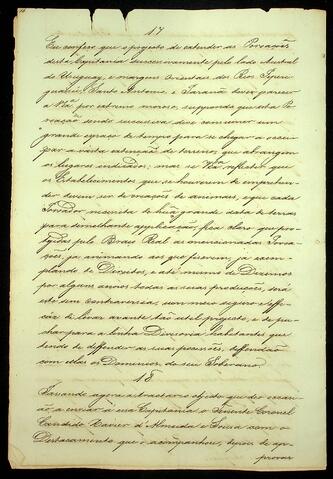 17
Eu confeso que o projecto de extender as Povoações
desta Capitania successivamente pelo lado Austral
do Uruguay, e margens Orientais dos Rios Pepiri
guassú, Santo Antonio, e Paraná deve parecer
a V.Ex.ª por extremo moroso, suppondo que esta Po-
voação sendo successiva deve consumir um
grande espaço de tempo para se chegar a occu-
par a vasta extensão de terrenos, que abrangem
os lugares indicados; mas se V.Ex.ª reflectir que
os Estabelecimentos que se houverem de emprehen-
der devem ser de criações de animaes, e que cada
Povoador necessita de hũa grande data de terras
para semelhante applicação, fica claro que pro-
tegidas pelo Braço Real as mencionadas Povoa-
ções, já animando aos que forem, já exem-
plando de Direitos, e até mesmo de Dizimos
por alguns annos todas as suas producções, será
sem controversia, um meio seguro e effi-
cáz de levar avante tão util projecto, e de pu-
char para a linha Divisoria habitantes que
tendo de deffender as suas possessões, deffendão
com ellas os Dominios do seu Soberano.
18
Passando agora a tractar o objecto que deu occa-
sião a enviar a essa Capitania o Tenente Coronel
Candido Xavier d'Almeida e Souza com o
Destacamento que o acompanhou, depois de ap-
provar